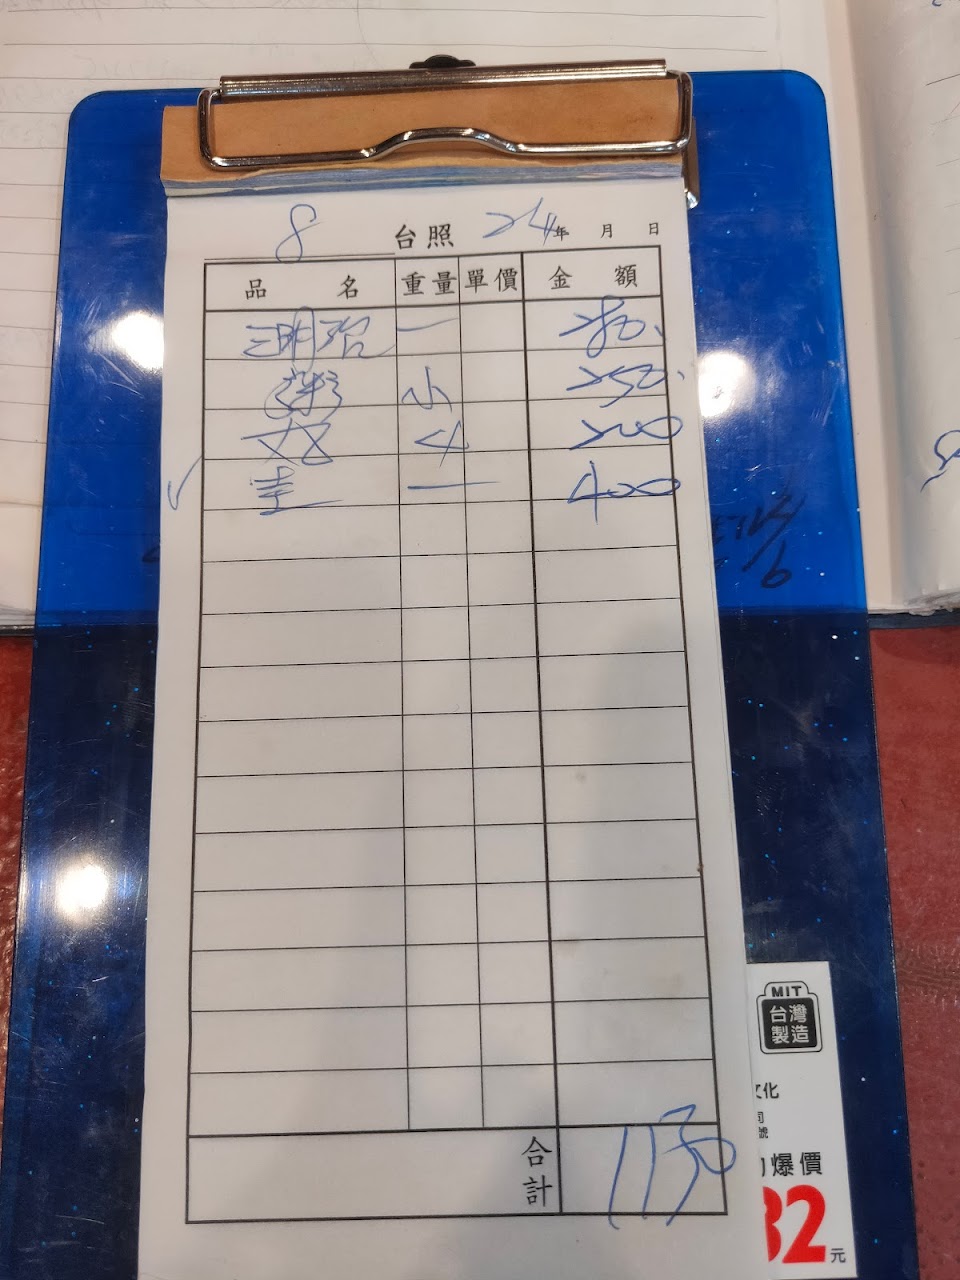 8 台照 24年 月 日
品 名 重量 單價 金 額
三明治 一 280.
粥 小 250.
丸 4 200
一 400
合計 1130
MIT
台灣
製造
文化
司
號
爆價
32元